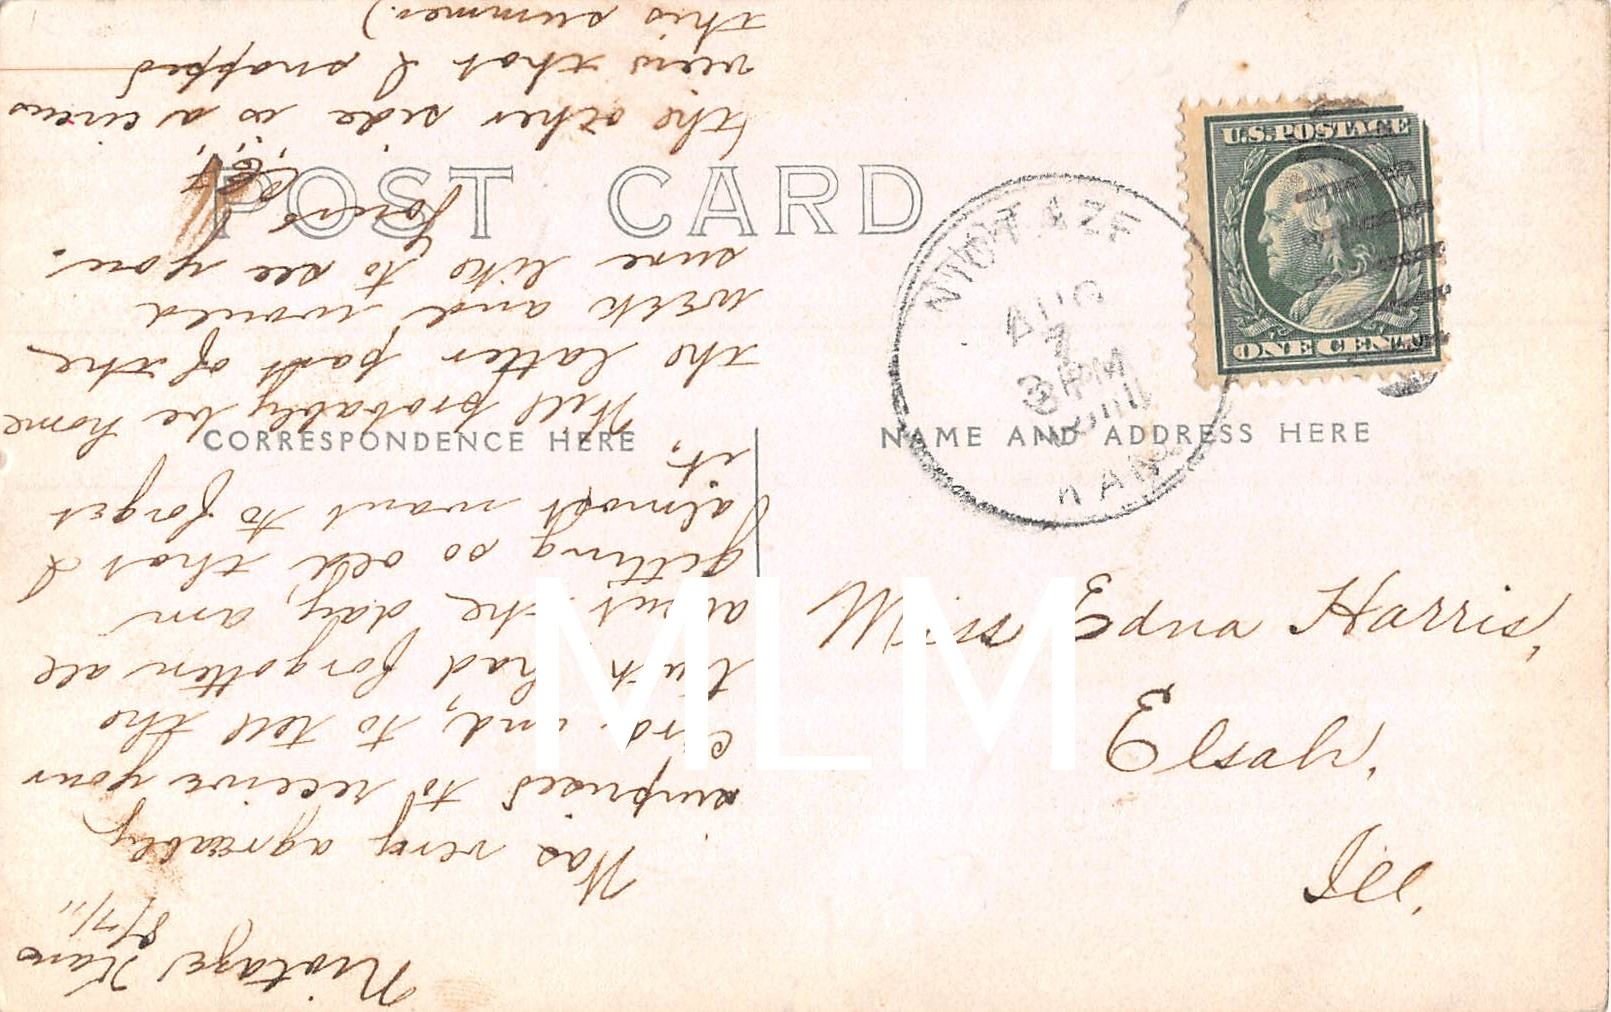 POST CARD
CORRESPONDENCE HERE
NAME AND ADDRESS HERE
U.S. POSTAGE
ONE CENT
NIOTAZE
AUG
7
3 PM
1911
KANS
Miss Edna Harris,
Elsah,
Ill.
Niotaze, Kans
8/7/11
Was very agreeably
surprised to receive your
card and, to tell the
truth had forgotten all
about the day, am
getting so old that I
almost want to forget
it.
Will probably be home
the latter part of the
week and would
sure like to see you.
Yours
(the other side is a circus
view that I snapped
this summer.)
MLM